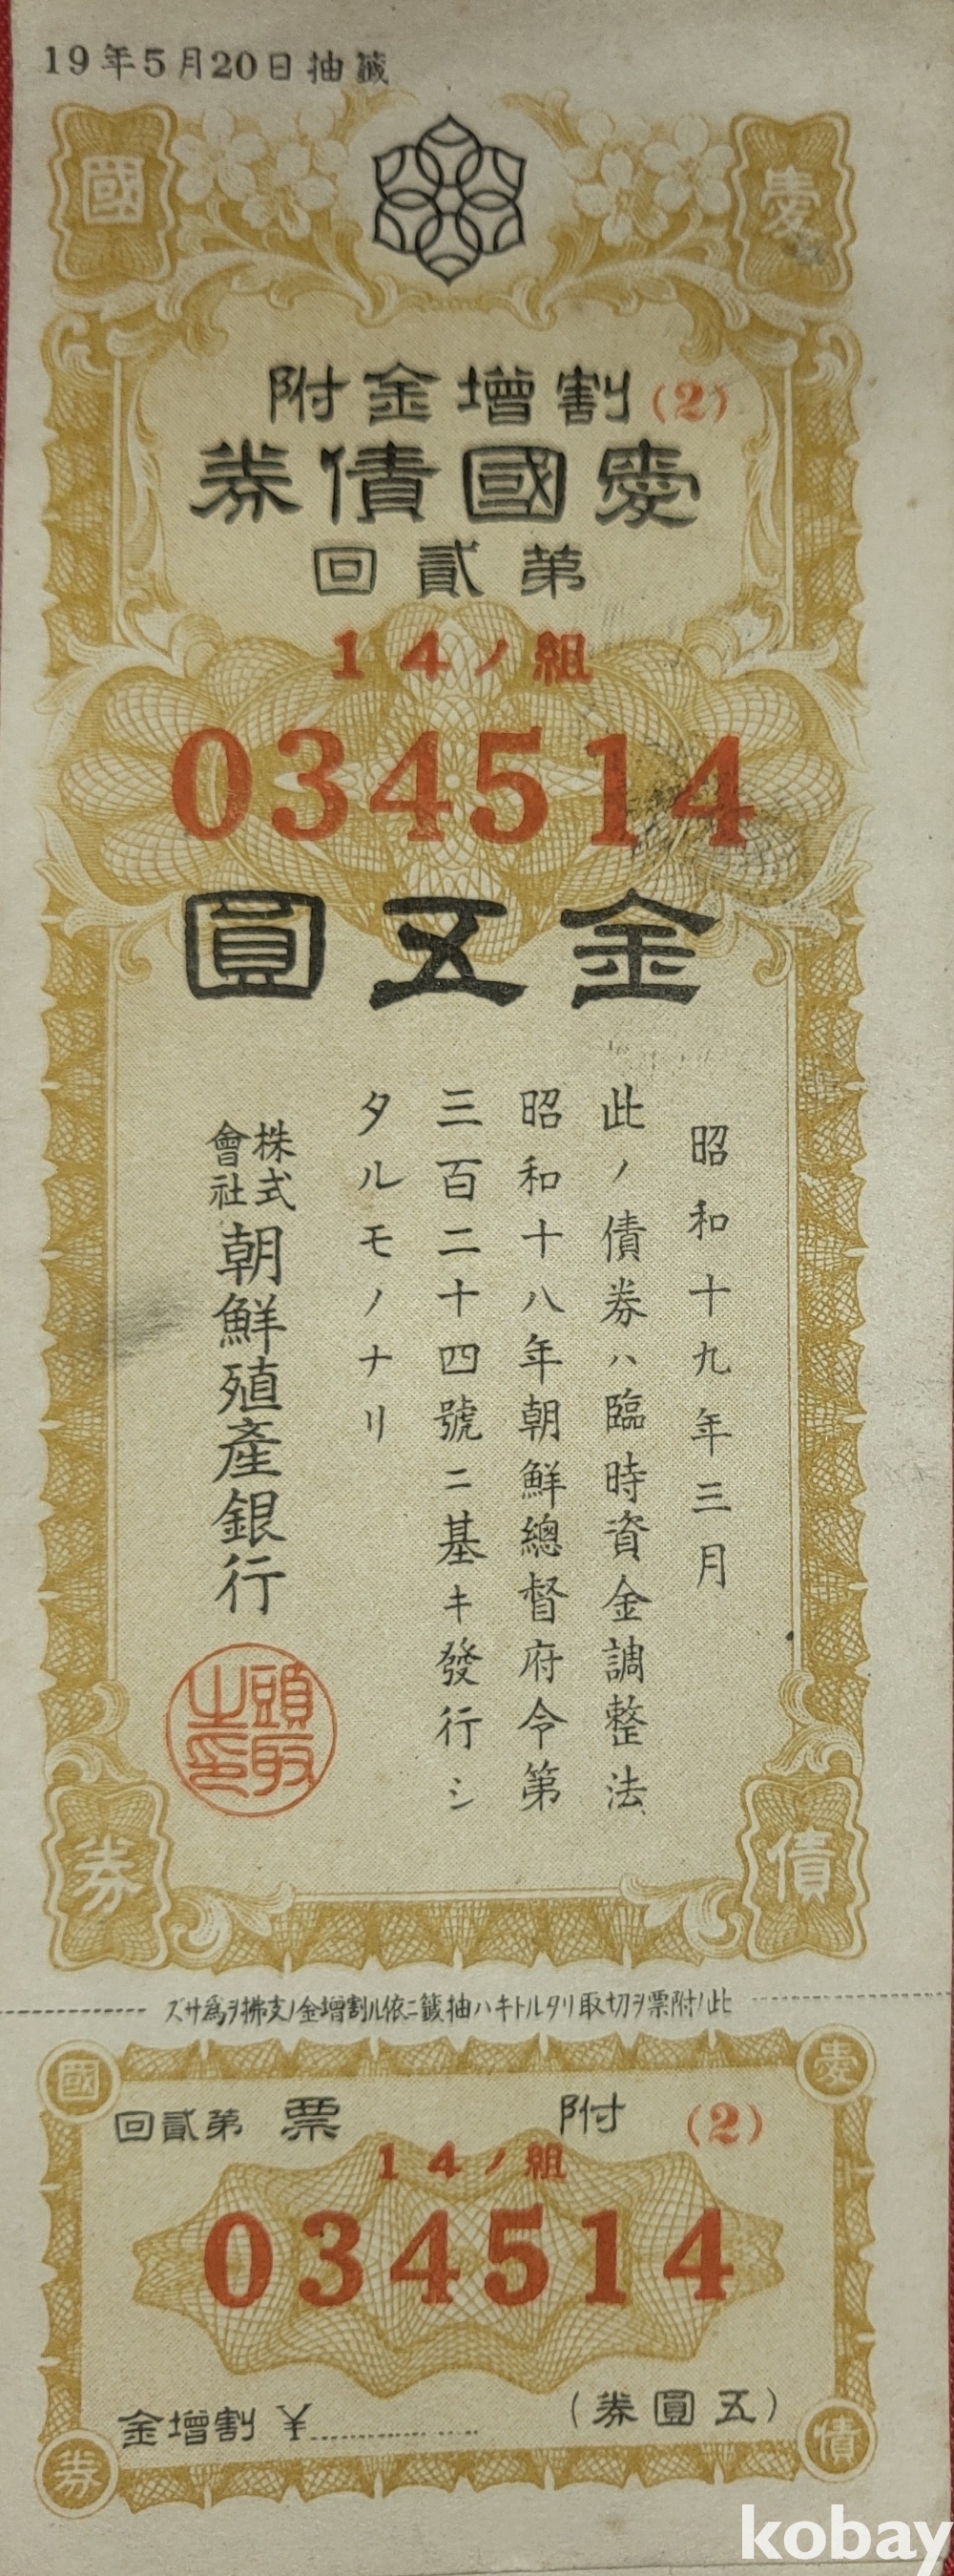 19年5月20日抽籤
愛國
割增金附
(2)
愛國債券
第貳回
14ノ組
034514
金五圓
昭和十九年三月
此ノ債券ハ臨時資金調整法
昭和十八年朝鮮總督府令第
三百二十四號ニ基キ發行シ
タルモノナリ
株式會社朝鮮殖產銀行
頭取之印
債券
此ノ附票ヲ切取リタルトキハ抽籤ニ依ル割增金ノ支拂ヲ爲サズ
愛國
(2)
附票
第貳回
14ノ組
034514
(五圓券)
割增金 ¥
債券
kobay